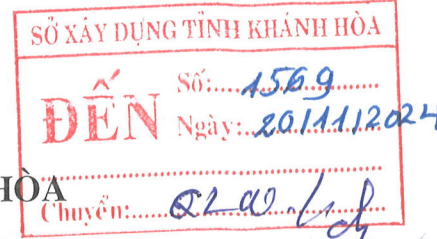 SỞ XÂY DỰNG TỈNH KHÁNH HÒA
ĐẾN
Số:....1569
Ngày:..20/11/2024
HÒA
Chuyển: